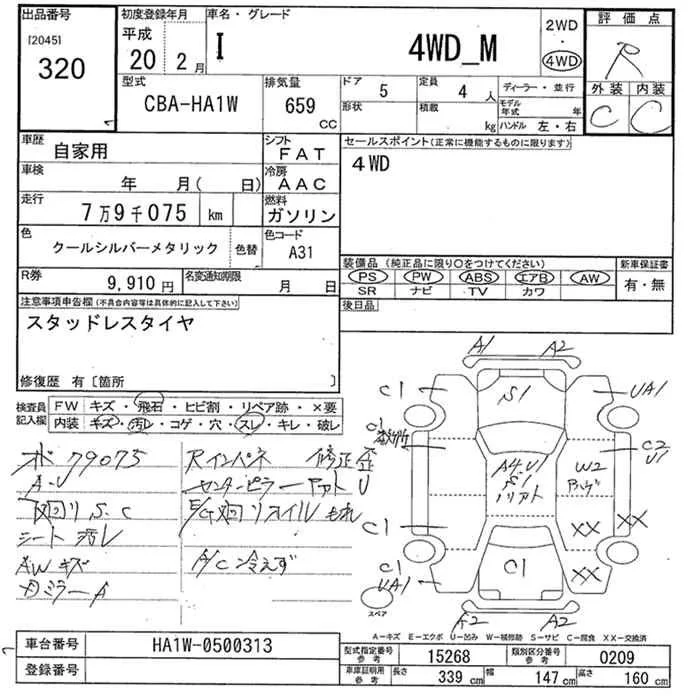 出品番号
[2045]
320
初度登録年月
平成
20 2月
車名・グレード
I 4WD_M
2WD
・
4WD
評価点
R
外装 内装
C C
型式
CBA-HA1W
排気量
659
CC
ドア 5
形状
定員 4 人
積載 kg
ディーラー・並行
モデル年式 年
ハンドル 左・右
車歴
自家用
シフト
FAT
車検
年 月( 日)
冷房
AAC
走行
7万9千075 km
燃料
ガソリン
色
クールシルバーメタリック
色替
色コード
A31
R券
9,910円
名変通知期限
月 日
セールスポイント(正常に機能するものに限ります)
4WD
装備品(純正品に限り○をつけてください)
PS PW ABS エアB AW
SR ナビ TV カワ
新車保証書
有・無
後日品
注意事項申告欄(不具合内容等は具体的に記入して下さい)
スタッドレスタイヤ
修復歴 有〔箇所 〕
検査員
記入欄
FW キズ・飛石・ヒビ割・リペア跡・×要
内装 キズ・汚レ・コゲ・穴・スレ・キレ・破レ
79075
A・U
下廻り S.C
シート 汚レ
AW キズ
Rインパネ 修正歪
センターピラー U
E/G廻りオイルもれ
A/C冷えず
A1 A2
C1 S1 UA1
C1
C2
U1
A4.U1
S1
W2
C1 XX XX
C1
UA1 C1 XX
A2 A2
スペア
A−キズ E−エクボ U−凹み W−補修跡 S−サビ C−腐食 XX−交換済
車台番号 HA1W-0500313
登録番号
型式指定番号
参考
15268
類別区分番号
参考
0209
車庫証明用
参考
長さ 339 cm
幅 147 cm
高さ 160 cm